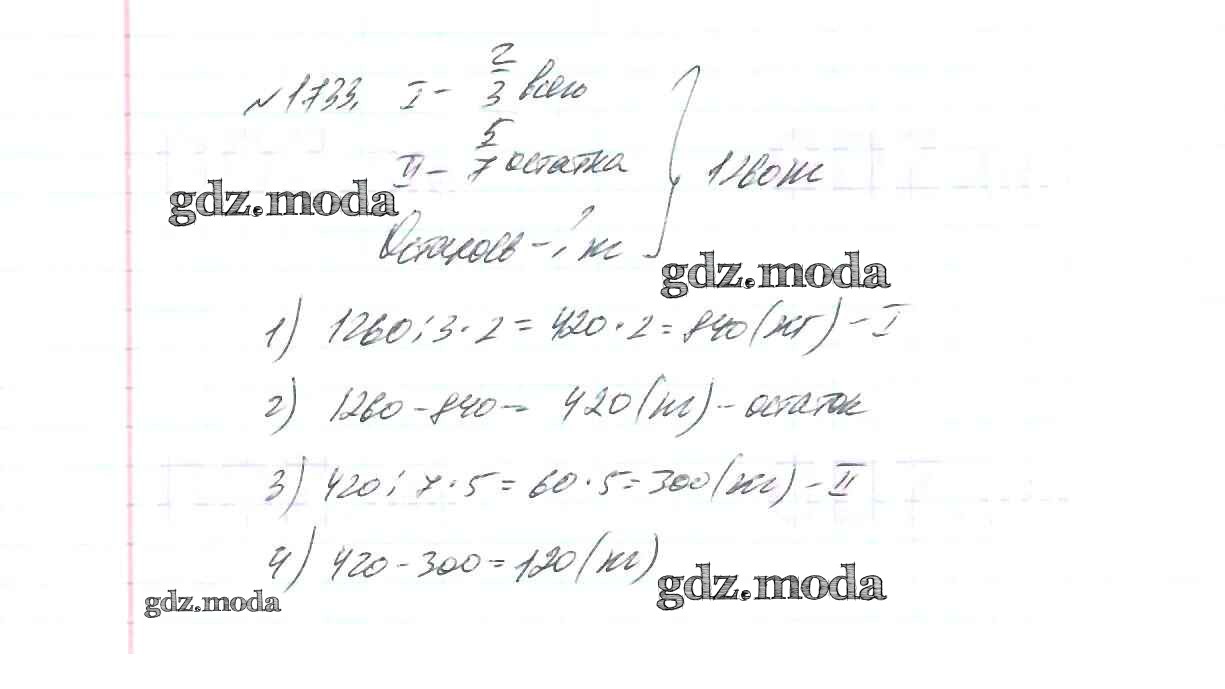 №1733. I - 2/3 всего
II - 5/7 остатка
1260 кг
gdz.moda
Осталось - ? кг
gdz.moda
1) 1260 : 3 · 2 = 420 · 2 = 840 (кг) - I
2) 1260 - 840 = 420 (кг) - остаток
3) 420 : 7 · 5 = 60 · 5 = 300 (кг) - II
4) 420 - 300 = 120 (кг)
gdz.moda
gdz.moda